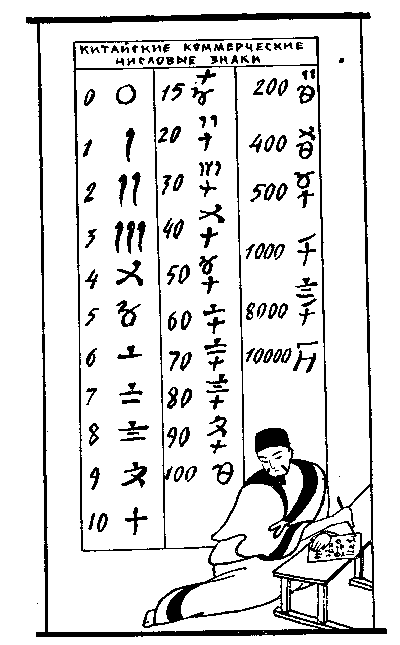 КИТАЙСКИЕ КОММЕРЧЕСКИЕ
ЧИСЛОВЫЕ ЗНАКИ
0 〇
1 〡
2 〢
3 〣
4 〤
5 〥
6 〦
7 〧
8 〨
9 〩
10 十
15 十〥
20 〢十
30 〣十
40 〤十
50 〥十
60 〦十
70 〧十
80 〨十
90 〩十
100
200
400
500 〥十
1000 一千
8000 〨千
10000